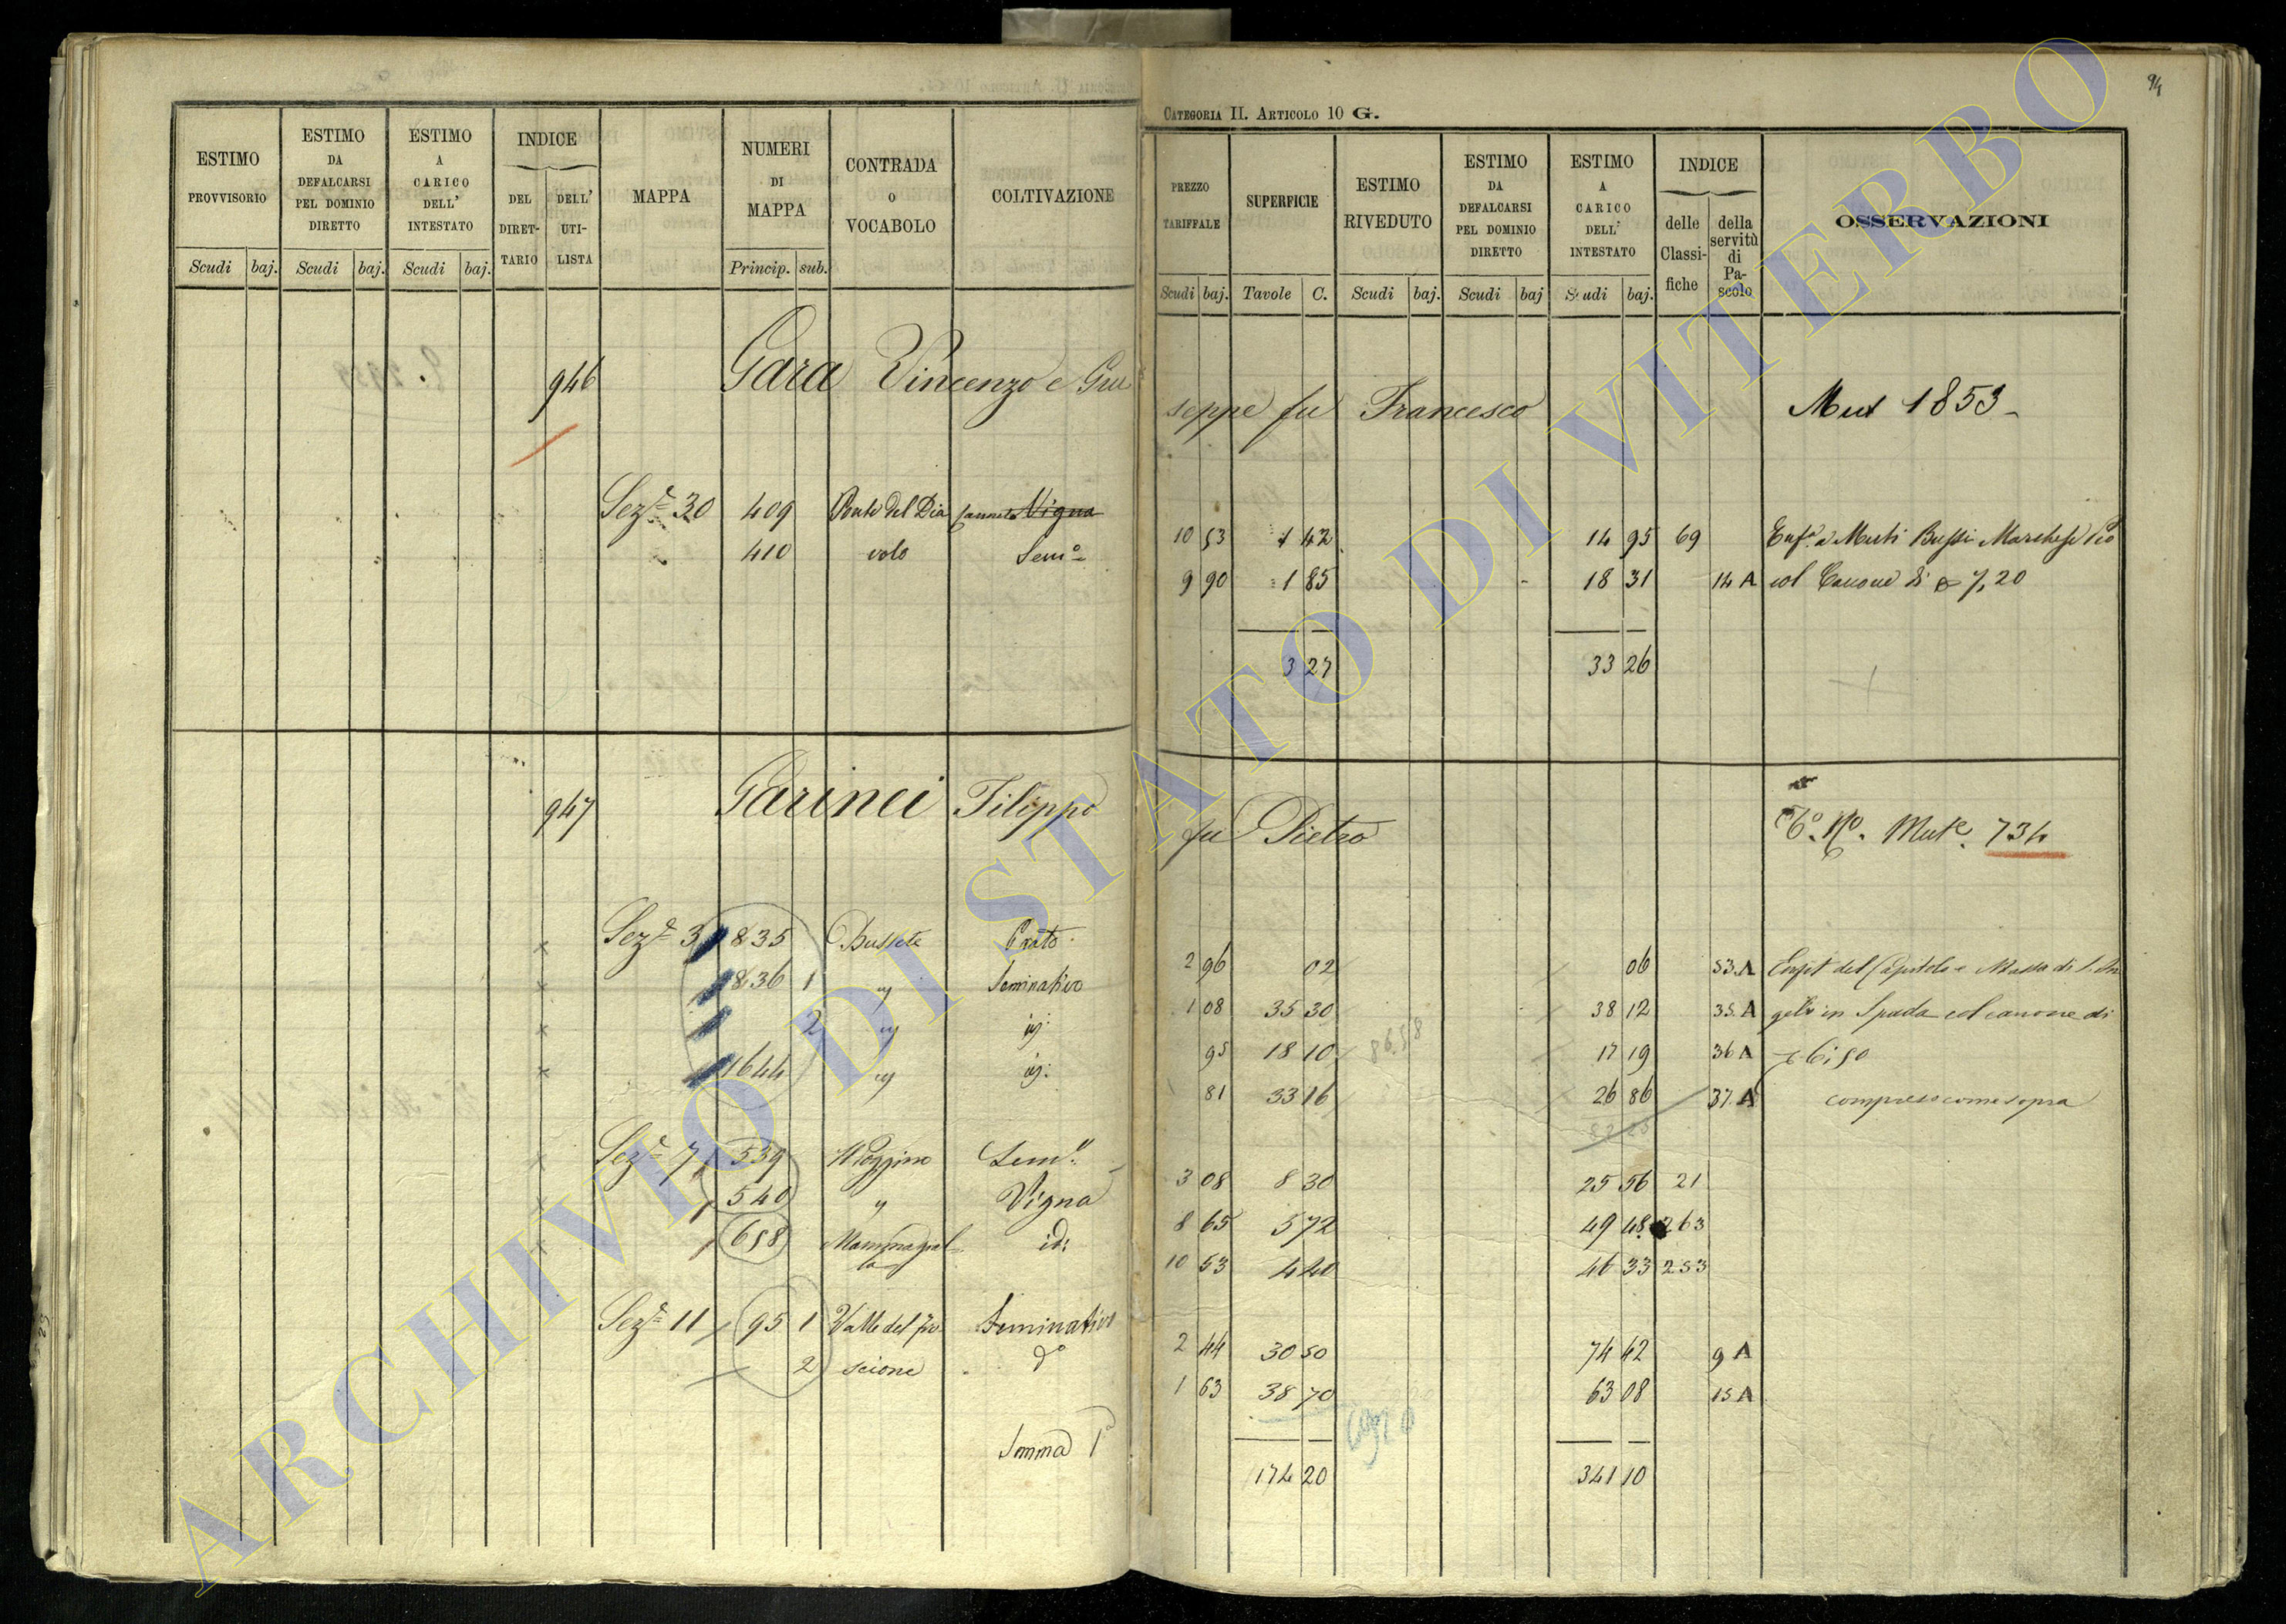 94
CATEGORIA II. ARTICOLO 10 G.
ESTIMO PROVVISORIO
ESTIMO DA DEFALCARSI PEL DOMINIO DIRETTO
ESTIMO A CARICO DELL' INTESTATO
INDICE
DEL DIRET-TARIO
DELL' UTI-LISTA
MAPPA
NUMERI DI MAPPA
CONTRADA O VOCABOLO
COLTIVAZIONE
Scudi baj. Scudi baj. Scudi baj. Princip. sub.
PREZZO TARIFFALE
SUPERFICIE
ESTIMO RIVEDUTO
ESTIMO DA DEFALCARSI PEL DOMINIO DIRETTO
ESTIMO A CARICO DELL' INTESTATO
INDICE
delle Classi-fiche
della servitù di Pa-scolo
OSSERVAZIONI
Scudi baj. Tavole C. Scudi baj. Scudi baj Scudi baj.
946 Gara Vincenzo e Giu
seppe fu Francesco Mut 1853
Sez.e 30 409 Ponte del Dia Canneto Vigna 10 53 1 42 14 95 69 Enf.a Muti Bussi Marchese Pio
410 volo Sem.o 9 90 1 85 18 31 14 A col Canone di 7,20
3 27 33 26
947 Garinei Filippo
fu Pietro
N.o Mut.e 734
Sez.e 3 835 Bussete Prato 2 96 02 06 53.A Enfit del Capitolo e Massa di S. An
836 1 " Seminativo 1 08 35 30 38 12 35.A gelo in Spada col canone di
2 " id: 95 18 10 86.58 17 19 36 A 6:50
1644 " id: 81 33 16 26 86 37.A compreso come sopra
82 23
Sez.e 7 539 Poggino Sem.o 3 08 8 30 25 56 21
540 " Vigna 8 65 5 72 49 48 263
658 Mammagial-la id: 10 53 4 40 46 33 253
Sez.e 11 95 1 Valle del fro Seminativo 2 44 30 50 74 42 9 A
2 scione d.o 1 63 38 70 63 08 15 A
Somma 174 20 341 10
23
ARCHIVIO DI STATO DI VITERBO